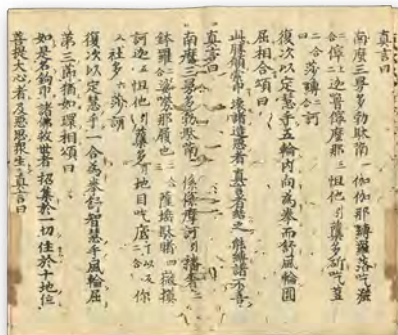 真言曰
南麼三曼多勃馱喃一伽伽那囉落吃灑
二合儜二迦魯儜麼那三怛他引蘗多斫吃芻
二合莎縛二合訶
復次以定慧手五輪內向為拳而舒風輪圓
屈相合頌曰
此勝願索印 壞諸造惡者 真言者結之 能縛諸不善
真言曰
南麼三曼多勃馱喃一係係摩訶引播奢二
鉢羅二合娑嘮那履也二合薩埵馱睹四微模
訶迦五怛他引蘗多引地目吃底二合你
入社多六莎訶
復次以定慧手一合為拳舒智慧手風輪屈
第三節猶如環相頌曰
如是名鉤印 諸佛救世者 招集於一切 住於十地位
菩提大心者 及惡思眾生 真言曰